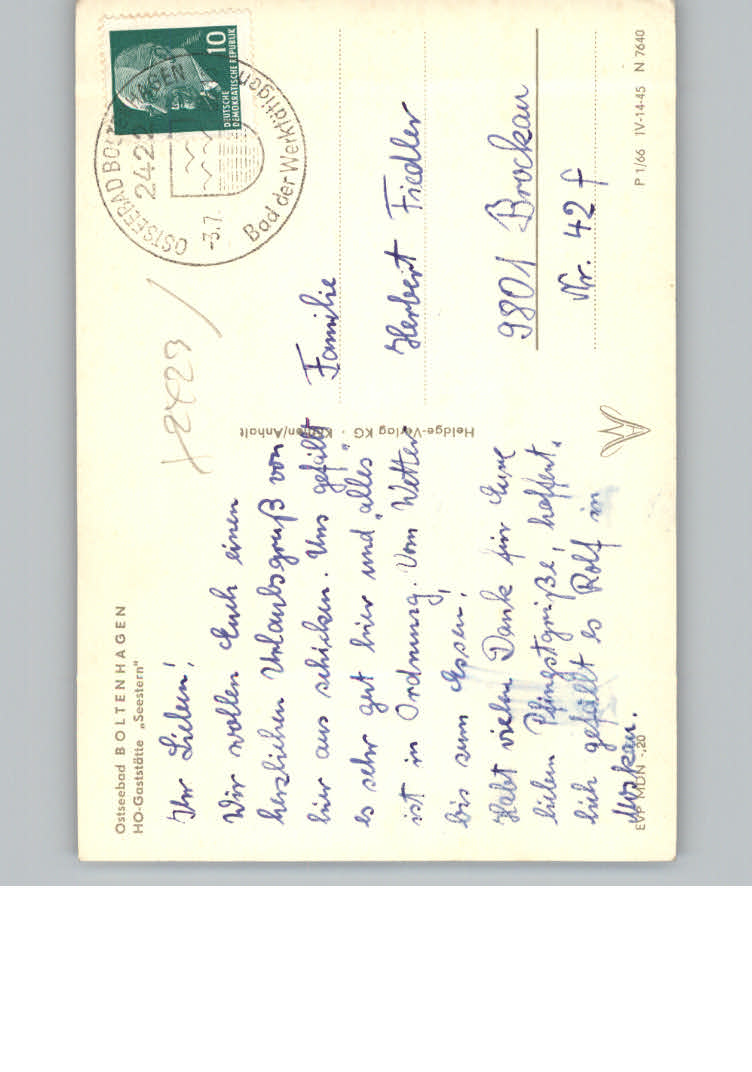 Ostseebad BOLTENHAGEN
HO-Gaststätte „Seestern"
Ihr Lieben!
Wir wollen Euch einen
herzlichen Urlaubsgruß von
hier aus schicken. Uns gefällt
es sehr gut hier und „alles"
ist in Ordnung. Vom Wetter
bis zum Essen.
Habt vielen Dank für Eure
lieben Pfingstgrüße, hoffent-
lich gefällt es Rolf in
Muskau.
EVP MDN -.20
Heldge-Verlag KG · Köthen/Anhalt
2423
OSTSEEBAD BOLTENHAGEN
2422
-3.7.
Bad der Werktätigen
10
DEUTSCHE
DEMOKRATISCHE REPUBLIK
Familie
Herbert Fiedler
9801 Brockau
Nr. 42 f
P 1/66 IV-14-45 N 7640